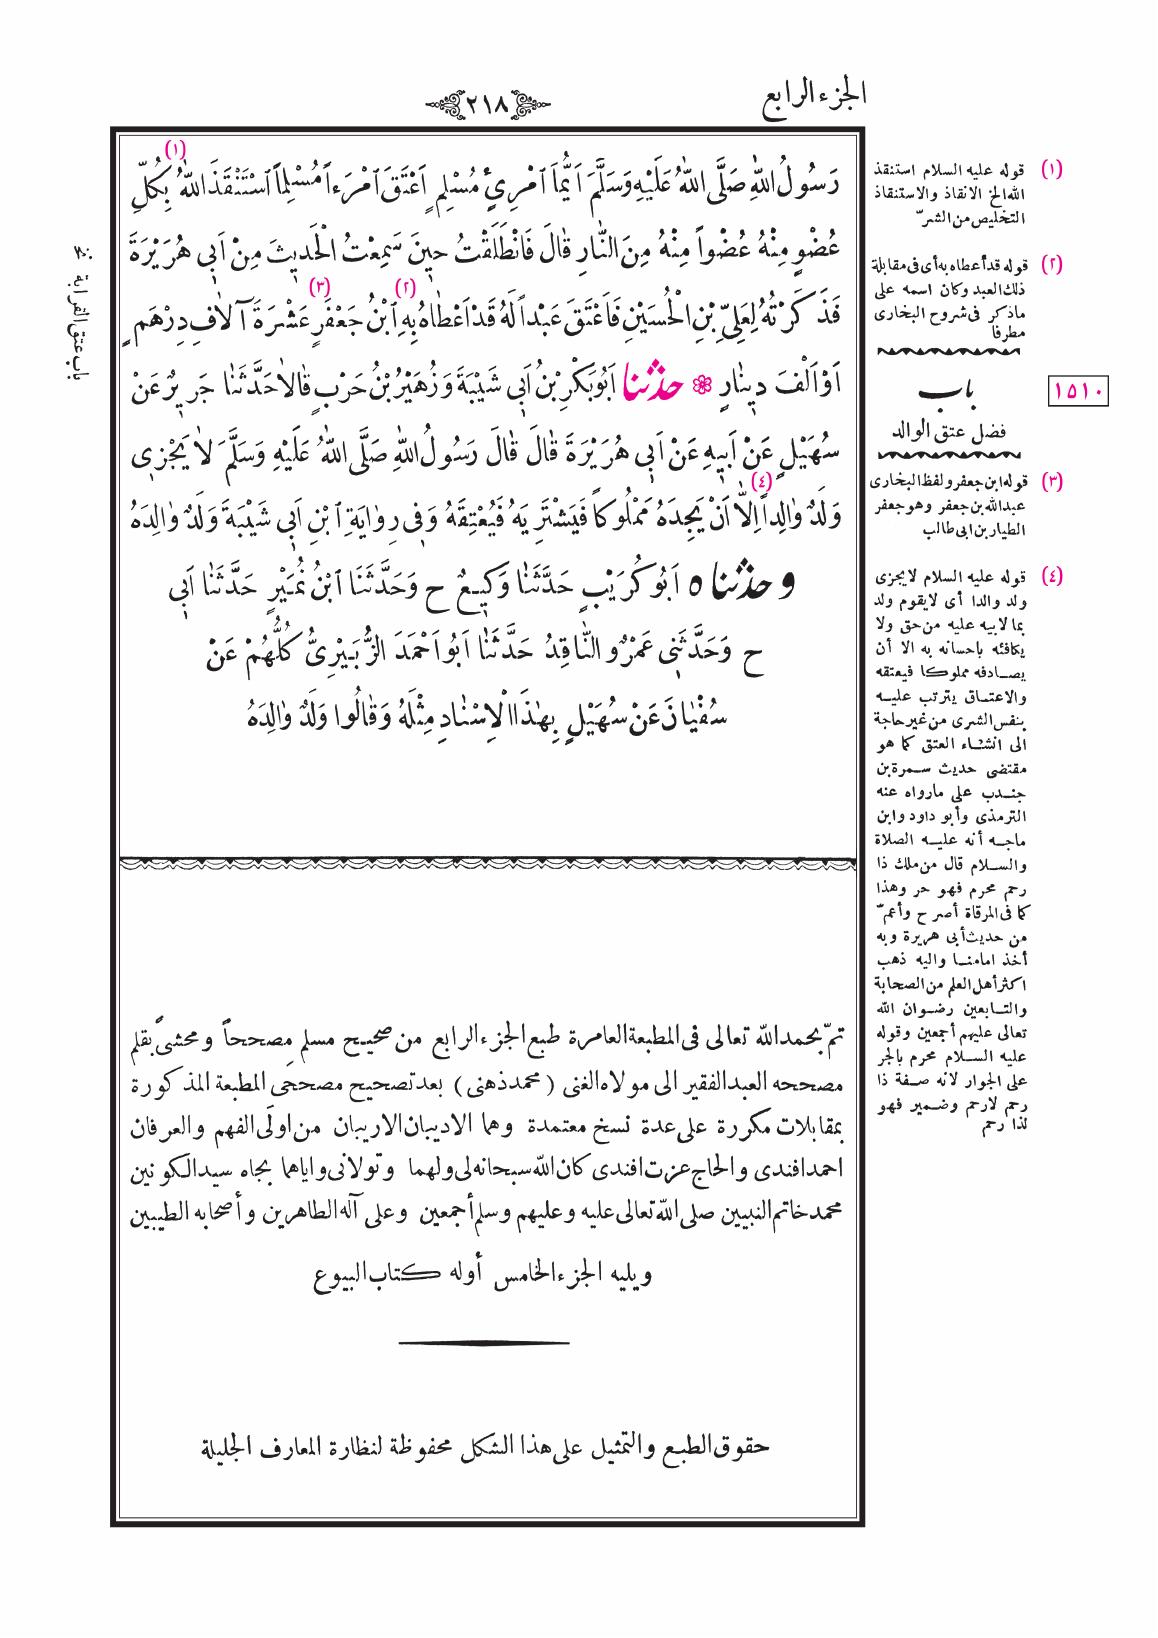 الجزء الرابع
٢١٨
رَسُولُ اللهِ صَلَّى اللهُ عَلَيْهِ وَسَلَّمَ اَيُّمَا اَمْرِئٍ مُسْلِمٍ اَعْتَقَ اَمْرَءاً مُسْلِماً اَسْتَنْقَذَ اللهُ (١) بِكُلِّ
عُضْوٍ مِنْهُ عُضْواً مِنْهُ مِنَ النَّارِ قَالَ فَانْطَلَقْتُ حِينَ سَمِعْتُ الْحَدِيثَ مِنْ اَبِي هُرَيْرَةَ
فَذَكَرْتُهُ لِعَلِيِّ بْنِ الْحُسَيْنِ فَاَعْتَقَ عَبْداً لَهُ قَدْ اَعْطَاهُ (٢) بِهِ ابْنُ جَعْفَرٍ (٣) عَشْرَةَ آلَافِ دِرْهَمٍ
اَوْ اَلْفَ دِينَارٍ ۞ حدثنا اَبُو بَكْرِ بْنُ اَبِي شَيْبَةَ وَزُهَيْرُ بْنُ حَرْبٍ قَالَا حَدَّثَنَا جَرِيرٌ عَنْ
سُهَيْلٍ عَنْ اَبِيهِ عَنْ اَبِي هُرَيْرَةَ قَالَ قَالَ رَسُولُ اللهِ صَلَّى اللهُ عَلَيْهِ وَسَلَّمَ لَا يَجْزِي
وَلَدٌ وَالِداً (٤) اِلَّا اَنْ يَجِدَهُ مَمْلُوكاً فَيَشْتَرِيَهُ فَيُعْتِقَهُ وَفِي رِوَايَةِ ابْنِ اَبِي شَيْبَةَ وَلَدٌ وَالِدَهُ
و حدثنا ه اَبُو كُرَيْبٍ حَدَّثَنَا وَكِيعٌ ح وَحَدَّثَنَا ابْنُ نُمَيْرٍ حَدَّثَنَا اَبِي
ح وَحَدَّثَنِي عَمْرٌو النَّاقِدُ حَدَّثَنَا اَبُو اَحْمَدَ الزُّبَيْرِيُّ كُلُّهُمْ عَنْ
سُفْيَانَ عَنْ سُهَيْلٍ بِهٰذَا الْاِسْنَادِ مِثْلَهُ وَقَالُوا وَلَدٌ وَالِدَهُ
تمّ بحمد الله تعالى فى المطبعة العامرة طبع الجزء الرابع من صحيح مسلم مصححاً ومحشىً بقلم
مصححه العبد الفقير الى مولاه الغنى (محمد ذهنى) بعد تصحيح مصححى المطبعة المذكورة
بمقابلات مكررة على عدة نسخ معتمدة وهما الاديبان الاريبان من اولى الفهم والعرفان
احمد افندى والحاج عزت افندى كان الله سبحانه لى ولهما وتولانى واياهما بجاه سيد الكونين
محمد خاتم النبيين صلى الله تعالى عليه وعليهم وسلم أجمعين وعلى آله الطاهرين وأصحابه الطيبين
ويليه الجزء الخامس أوله كتاب البيوع
حقوق الطبع والتمثيل على هذا الشكل محفوظة لنظارة المعارف الجليلة
(١) قوله عليه السلام استنقذ
الله الخ الانقاذ والاستنقاذ
التخليص من الشرّ
(٢) قوله قد أعطاه به أى فى مقابلة
ذلك العبد وكان اسمه على
ماذكر فى شروح البخارى
مطرفا
١٥١٠
باب
فضل عتق الوالد
(٣) قوله ابن جعفر ولفظ البخارى
عبدالله بن جعفر وهو جعفر
الطيار بن ابى طالب
(٤) قوله عليه السلام لا يجزى
ولد والدا أى لا يقوم ولد
بما لابيه عليه من حق ولا
يكافئه باحسانه به الا أن
يصادفه مملوكا فيعتقه
والاعتاق يترتب عليه
بنفس الشرى من غير حاجة
الى انشاء العتق كما هو
مقتضى حديث سمرة بن
جندب على مارواه عنه
الترمذى وأبو داود وابن
ماجه أنه عليه الصلاة
والسلام قال من ملك ذا
رحم محرم فهو حر وهذا
كما فى المرقاة أصرح وأعمّ
من حديث أبى هريرة وبه
أخذ امامنا واليه ذهب
اكثر أهل العلم من الصحابة
والتابعين رضوان الله
تعالى عليهم أجمعين وقوله
عليه السلام محرم بالجر
على الجوار لانه صفة ذا
رحم لا رحم وضمير فهو
لذا رحم
باب عتق القرابة